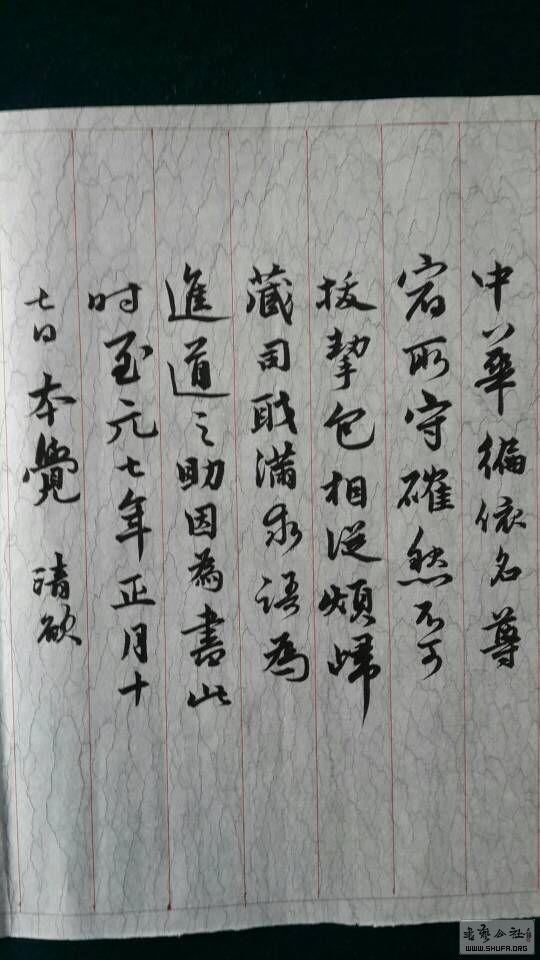 中華徧依名尊
宿所守確然不可
拔挈包相從煩歸
藏司職滿求語為
進道之助因為書此
時至元七年正月十
七日本覺 清欲
书艺公社
WWW.SHUFA.ORG